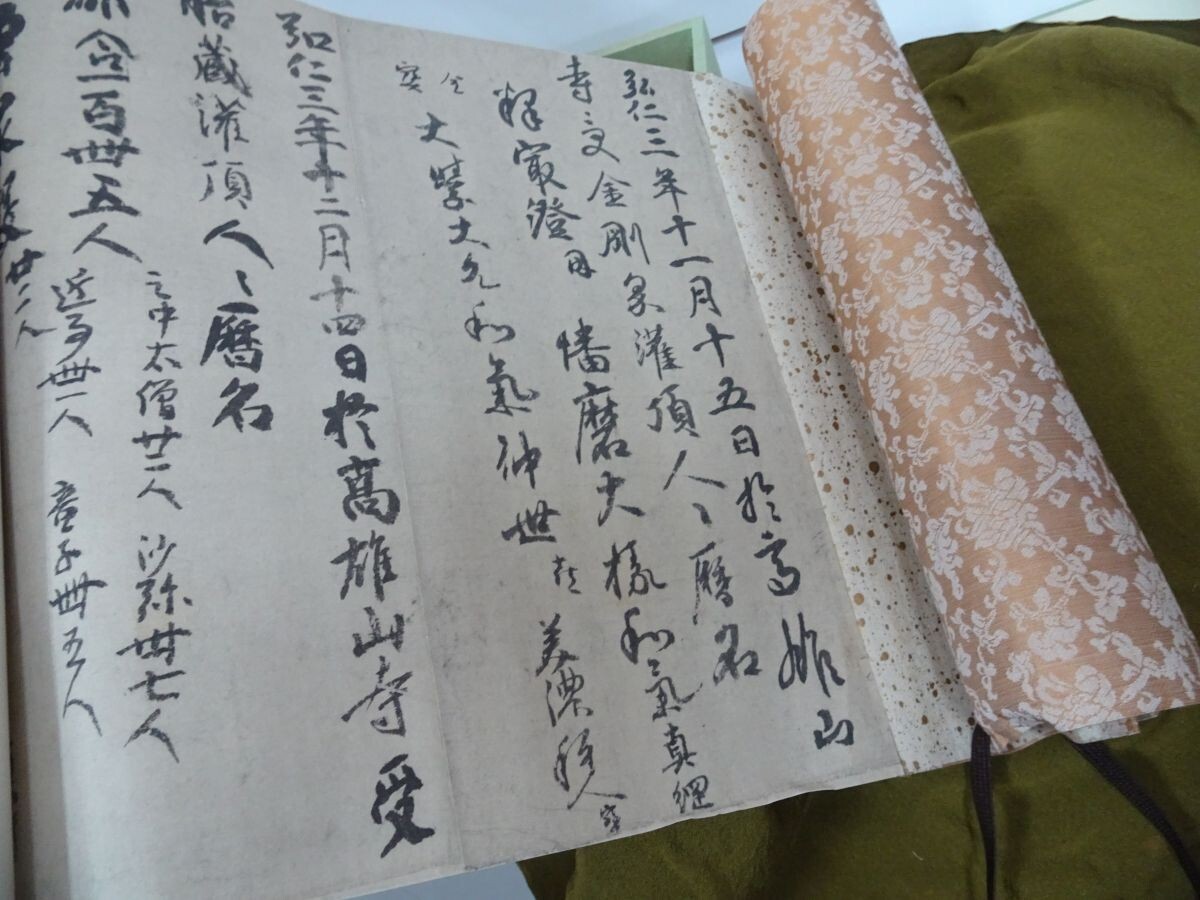 弘仁三年十一月十五日於高雄山
寺受金剛界灌頂人々暦名
釋㝡澄因 播磨大掾和氣真綱
金寶 大學大允和氣仲世喜 美濃種人寶
弘仁三年十二月十四日於高雄山寺受
胎藏灌頂人々暦名
都合一百卌五人
之中太僧廿二人 沙弥卅七人
近事卌一人 童子卌五人